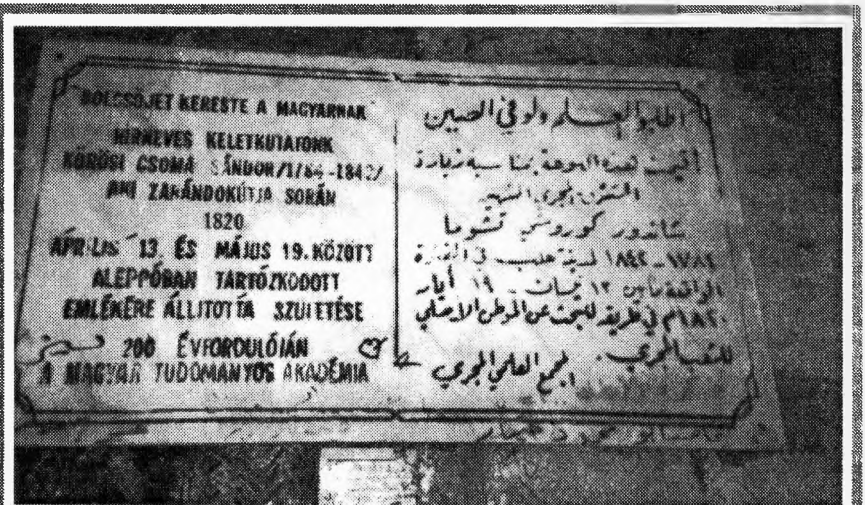 BÖLCSŐJÉT KERESTE A MAGYARNAK
HIRNEVES KELETKUTATÓNK
KŐRÖSI CSOMA SÁNDOR /1784-1842/
AKI ZARÁNDOKÚTJA SORÁN
1820
ÁPRILIS 13. ÉS MÁJUS 19. KÖZÖTT
ALEPPÓBAN TARTÓZKODOTT
EMLÉKÉRE ÁLLITOTTA SZÜLETÉSE
200 ÉVFORDULÓJÁN
A MAGYAR TUDOMÁNYOS AKADÉMIA
اطلبوا العلم ولو في الصين
أقيمت هذه اللوحة بمناسبة زيارة
المستشرق المجري الشهير
شاندور كوروشي تشوما
١٧٨٤-١٨٤٢ لمدينة حلب في الفترة
الواقعة مابين ١٣ نيسان - ١٩ أيار
١٨٢٠م في طريقه للبحث عن الموطن الأصلي
للشعب المجري.
المجمع العلمي المجري